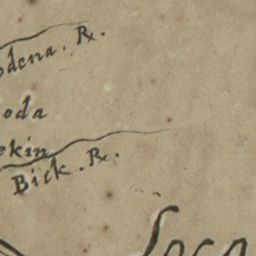 odena. R.
oda
ekin
Bick. R.
Soca